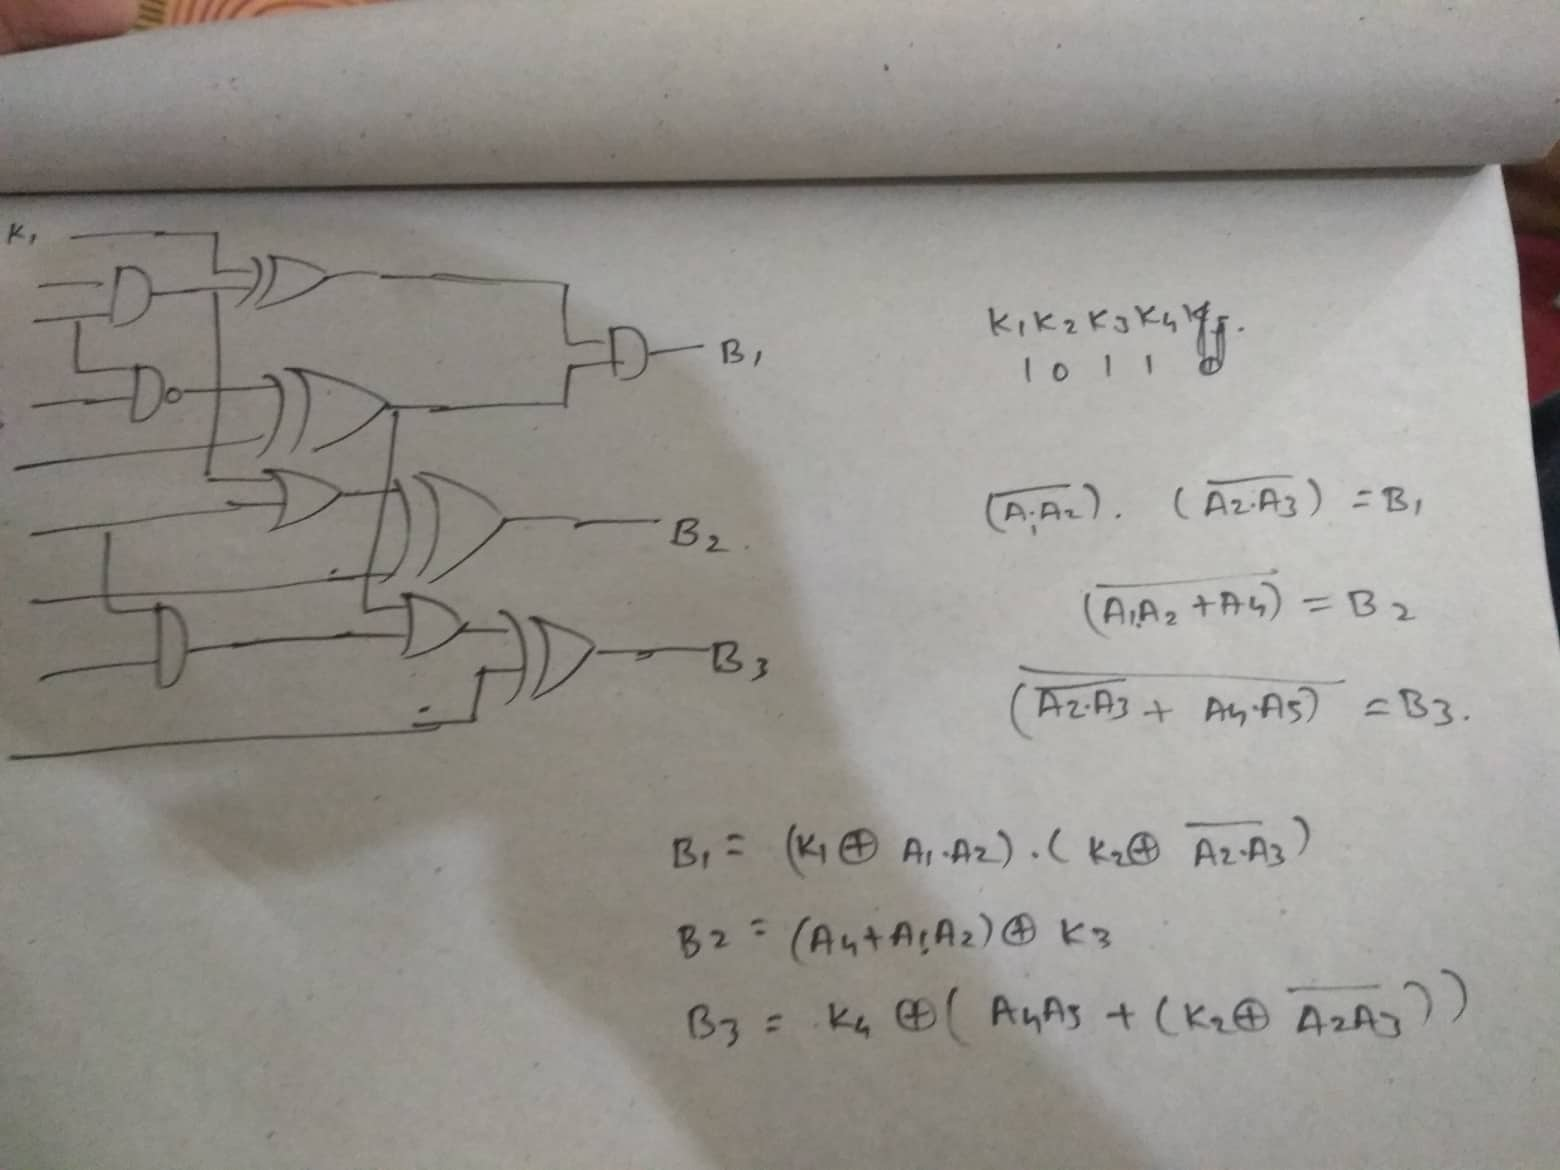 K₁
B₁
B₂.
B₃
K₁ K₂ K₃ K₄
1 0 1 1 0
(A̅₁̅.̅A̅₂̅). (A̅₂̅.̅A̅₃̅) = B₁
(A̅₁̅.̅A̅₂̅ ̅+̅A̅₄̅) = B₂
‾(A̅₂̅.̅A̅₃̅ + A₄.A₅)‾ = B₃.
B₁ = (K₁ ⊕ A₁.A₂).( K₂⊕ A̅₂̅.̅A̅₃̅)
B₂ = (A₄+A₁A₂) ⊕ K₃
B₃ = K₄ ⊕( A₄A₅ + (K₂⊕ A̅₂̅A̅₃̅))